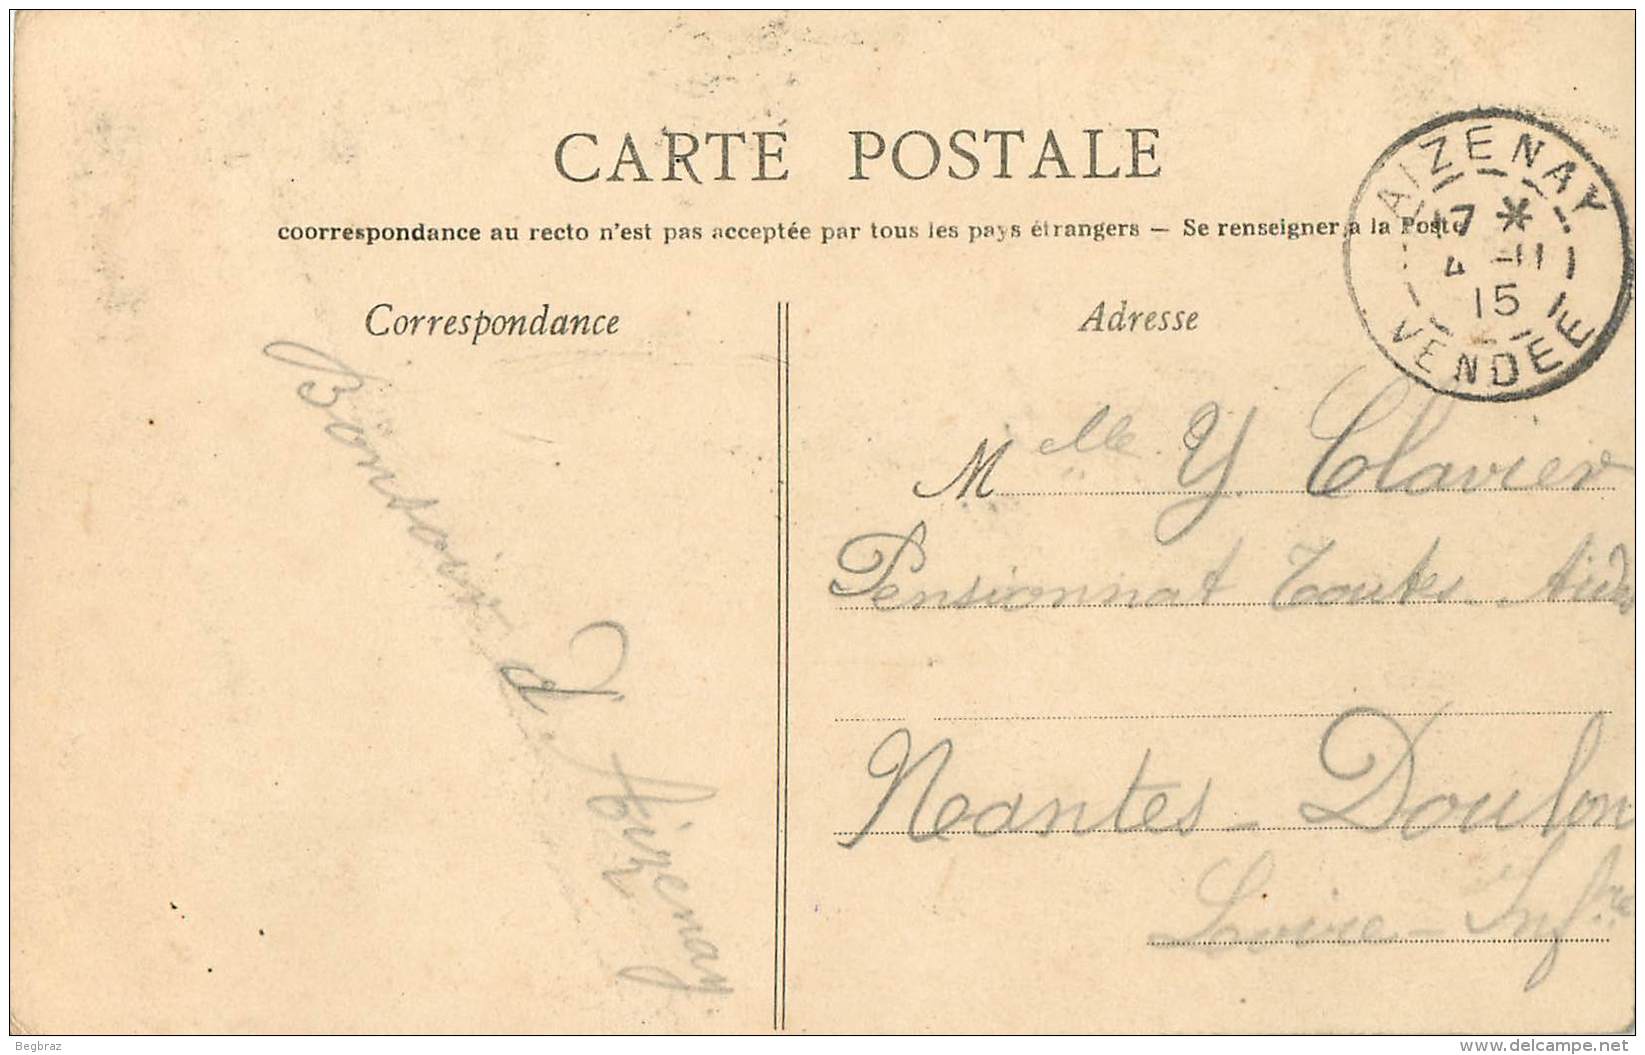 CARTE POSTALE
coorrespondance au recto n'est pas acceptée par tous les pays étrangers — Se renseigner à la Poste
AIZENAY
17 *
4 -11
15
VENDEE
Correspondance
Bonsoir
d'Aizenay
Adresse
Melle Y. Clavier
Pensionnat Toutes-Aides
Nantes - Doulon
Loire - Infre
Begbraz
www.delcampe.net